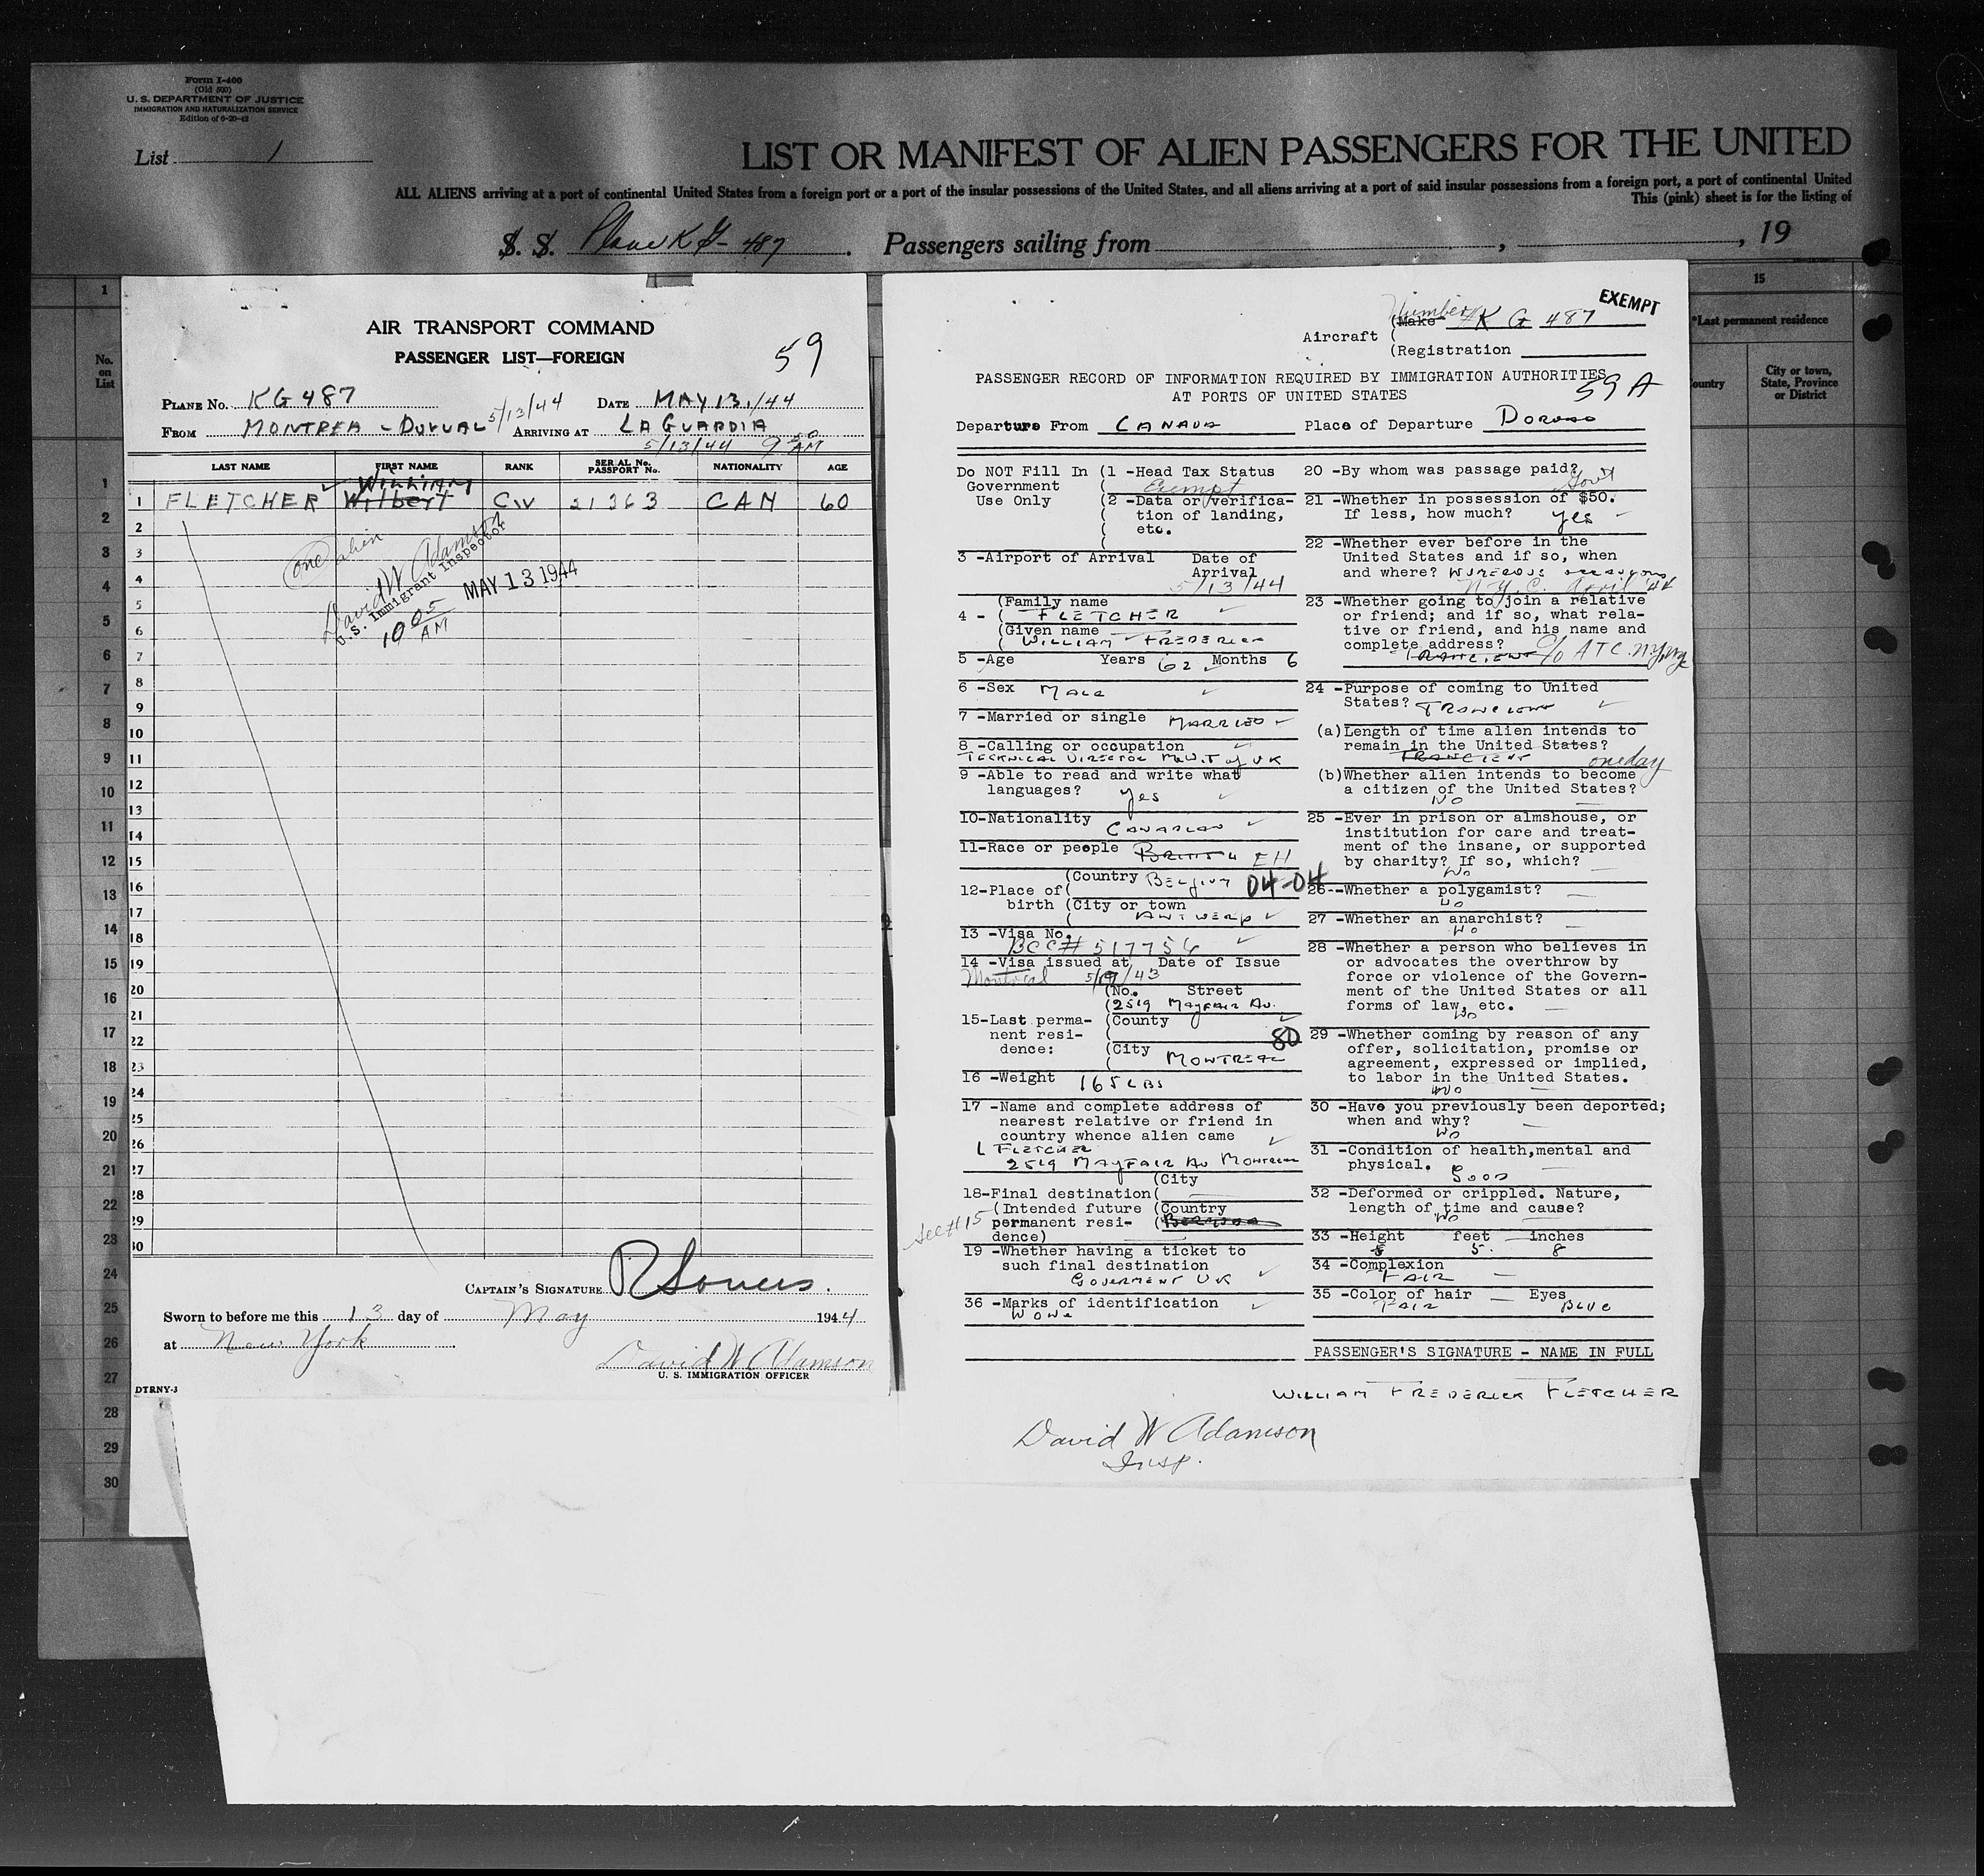 Form I-400
(Old 500)
U. S. DEPARTMENT OF JUSTICE
IMMIGRATION AND NATURALIZATION SERVICE
Edition of 6-20-42
List 1
LIST OR MANIFEST OF ALIEN PASSENGERS FOR THE UNITED
ALL ALIENS arriving at a port of continental United States from a foreign port or a port of the insular possessions of the United States, and all aliens arriving at a port of said insular possessions from a foreign port, a port of continental United
This (pink) sheet is for the listing of
S. S. Plane KG-487. Passengers sailing from , , 19
No. on List
1
2
3
4
5
6
7
8
9
10
11
12
13
14
15
16
17
18
19
20
21
22
23
24
25
26
27
28
29
30
15
*Last permanent residence
ountry
City or town, State, Province or District
AIR TRANSPORT COMMAND
PASSENGER LIST—FOREIGN
59
PLANE No. KG 487 DATE MAY 13./44
FROM MONTREA - DORVAL 5/13/44 ARRIVING AT LA GUARDIA
5/13/44 9 50 AM
LAST NAME FIRST NAME RANK SERIAL No. PASSPORT No. NATIONALITY AGE
WILLIAM
1 FLETCHER Wilbert CIV 21363 CAN 60
2
3
4
5
6
7
8
9
10
11
12
13
14
15
16
17
18
19
20
21
22
23
24
25
26
27
28
29
30
one alien
David W Adamson
U. S. Immigrant Inspector
MAY 13 1944
10 05 AM
CAPTAIN'S SIGNATURE
Sworn to before me this 13 day of May 1944
at New York
David W Adamson
U. S. IMMIGRATION OFFICER
DTRNY-3
EXEMPT
Number
Aircraft (Make # K G 487
(Registration
PASSENGER RECORD OF INFORMATION REQUIRED BY IMMIGRATION AUTHORITIES
AT PORTS OF UNITED STATES
59 A
Departure From CANADA Place of Departure DORVAL
Do NOT Fill In Government Use Only
(1 -Head Tax Status
Exempt
(2 -Data or verification of landing, etc.
3 -Airport of Arrival Date of Arrival
5/13/44
4 - (Family name
FLETCHER
(Given name
WILLIAM FREDERICK
5 -Age Years 62 Months 6
6 -Sex MALE
7 -Married or single MARRIED
8 -Calling or occupation
TECHNICAL DIRECTOR M.W.T of UK
9 -Able to read and write what
languages? Yes
10-Nationality CANADIAN
11-Race or people BRITISH EH
12-Place of birth (Country BELGIUM 04-04
(City or town
ANTWERP
13 -Visa No.
BCC# 517756
14 -Visa issued at Date of Issue
Montreal 5/19/43
(No. Street
(2519 MAYFAIR AV.
15-Last permanent residence:
(County
80
(City MONTREAL
16 -Weight 165 LBS
17 -Name and complete address of
nearest relative or friend in
country whence alien came
L FLETCHER
2519 MAYFAIR AV MONTREAL
18-Final destination (City
(Intended future permanent residence)
(Country
BERMUDA
See #15
19 -Whether having a ticket to
such final destination
GOVERMENT UK
36 -Marks of identification
NONE
20 -By whom was passage paid?
Gov't
21 -Whether in possession of $50.
If less, how much? Yes
22 -Whether ever before in the
United States and if so, when
and where? NUMEROUS OCCASIONS
N.Y.C. April '44
23 -Whether going to join a relative
or friend; and if so, what rela-
tive or friend, and his name and
complete address?
TRANCIENT c/o ATC.
24 -Purpose of coming to United
States? TRANCIENT
(a)Length of time alien intends to
remain in the United States?
TRANCIENT one day
(b)Whether alien intends to become
a citizen of the United States?
NO
25 -Ever in prison or almshouse, or
institution for care and treat-
ment of the insane, or supported
by charity? If so, which?
NO
26--Whether a polygamist?
NO
27 -Whether an anarchist?
NO
28 -Whether a person who believes in
or advocates the overthrow by
force or violence of the Govern-
ment of the United States or all
forms of law, etc.
NO
29 -Whether coming by reason of any
offer, solicitation, promise or
agreement, expressed or implied,
to labor in the United States.
NO
30 -Have you previously been deported;
when and why?
NO
31 -Condition of health,mental and
physical. GOOD
32 -Deformed or crippled. Nature,
length of time and cause?
NO
33 -Height feet inches
5 5. 8
34 -Complexion
FAIR
35 -Color of hair Eyes
FAIR BLUE
PASSENGER'S SIGNATURE - NAME IN FULL
WILLIAM FREDERICK FLETCHER
David W Adamson
Insp.